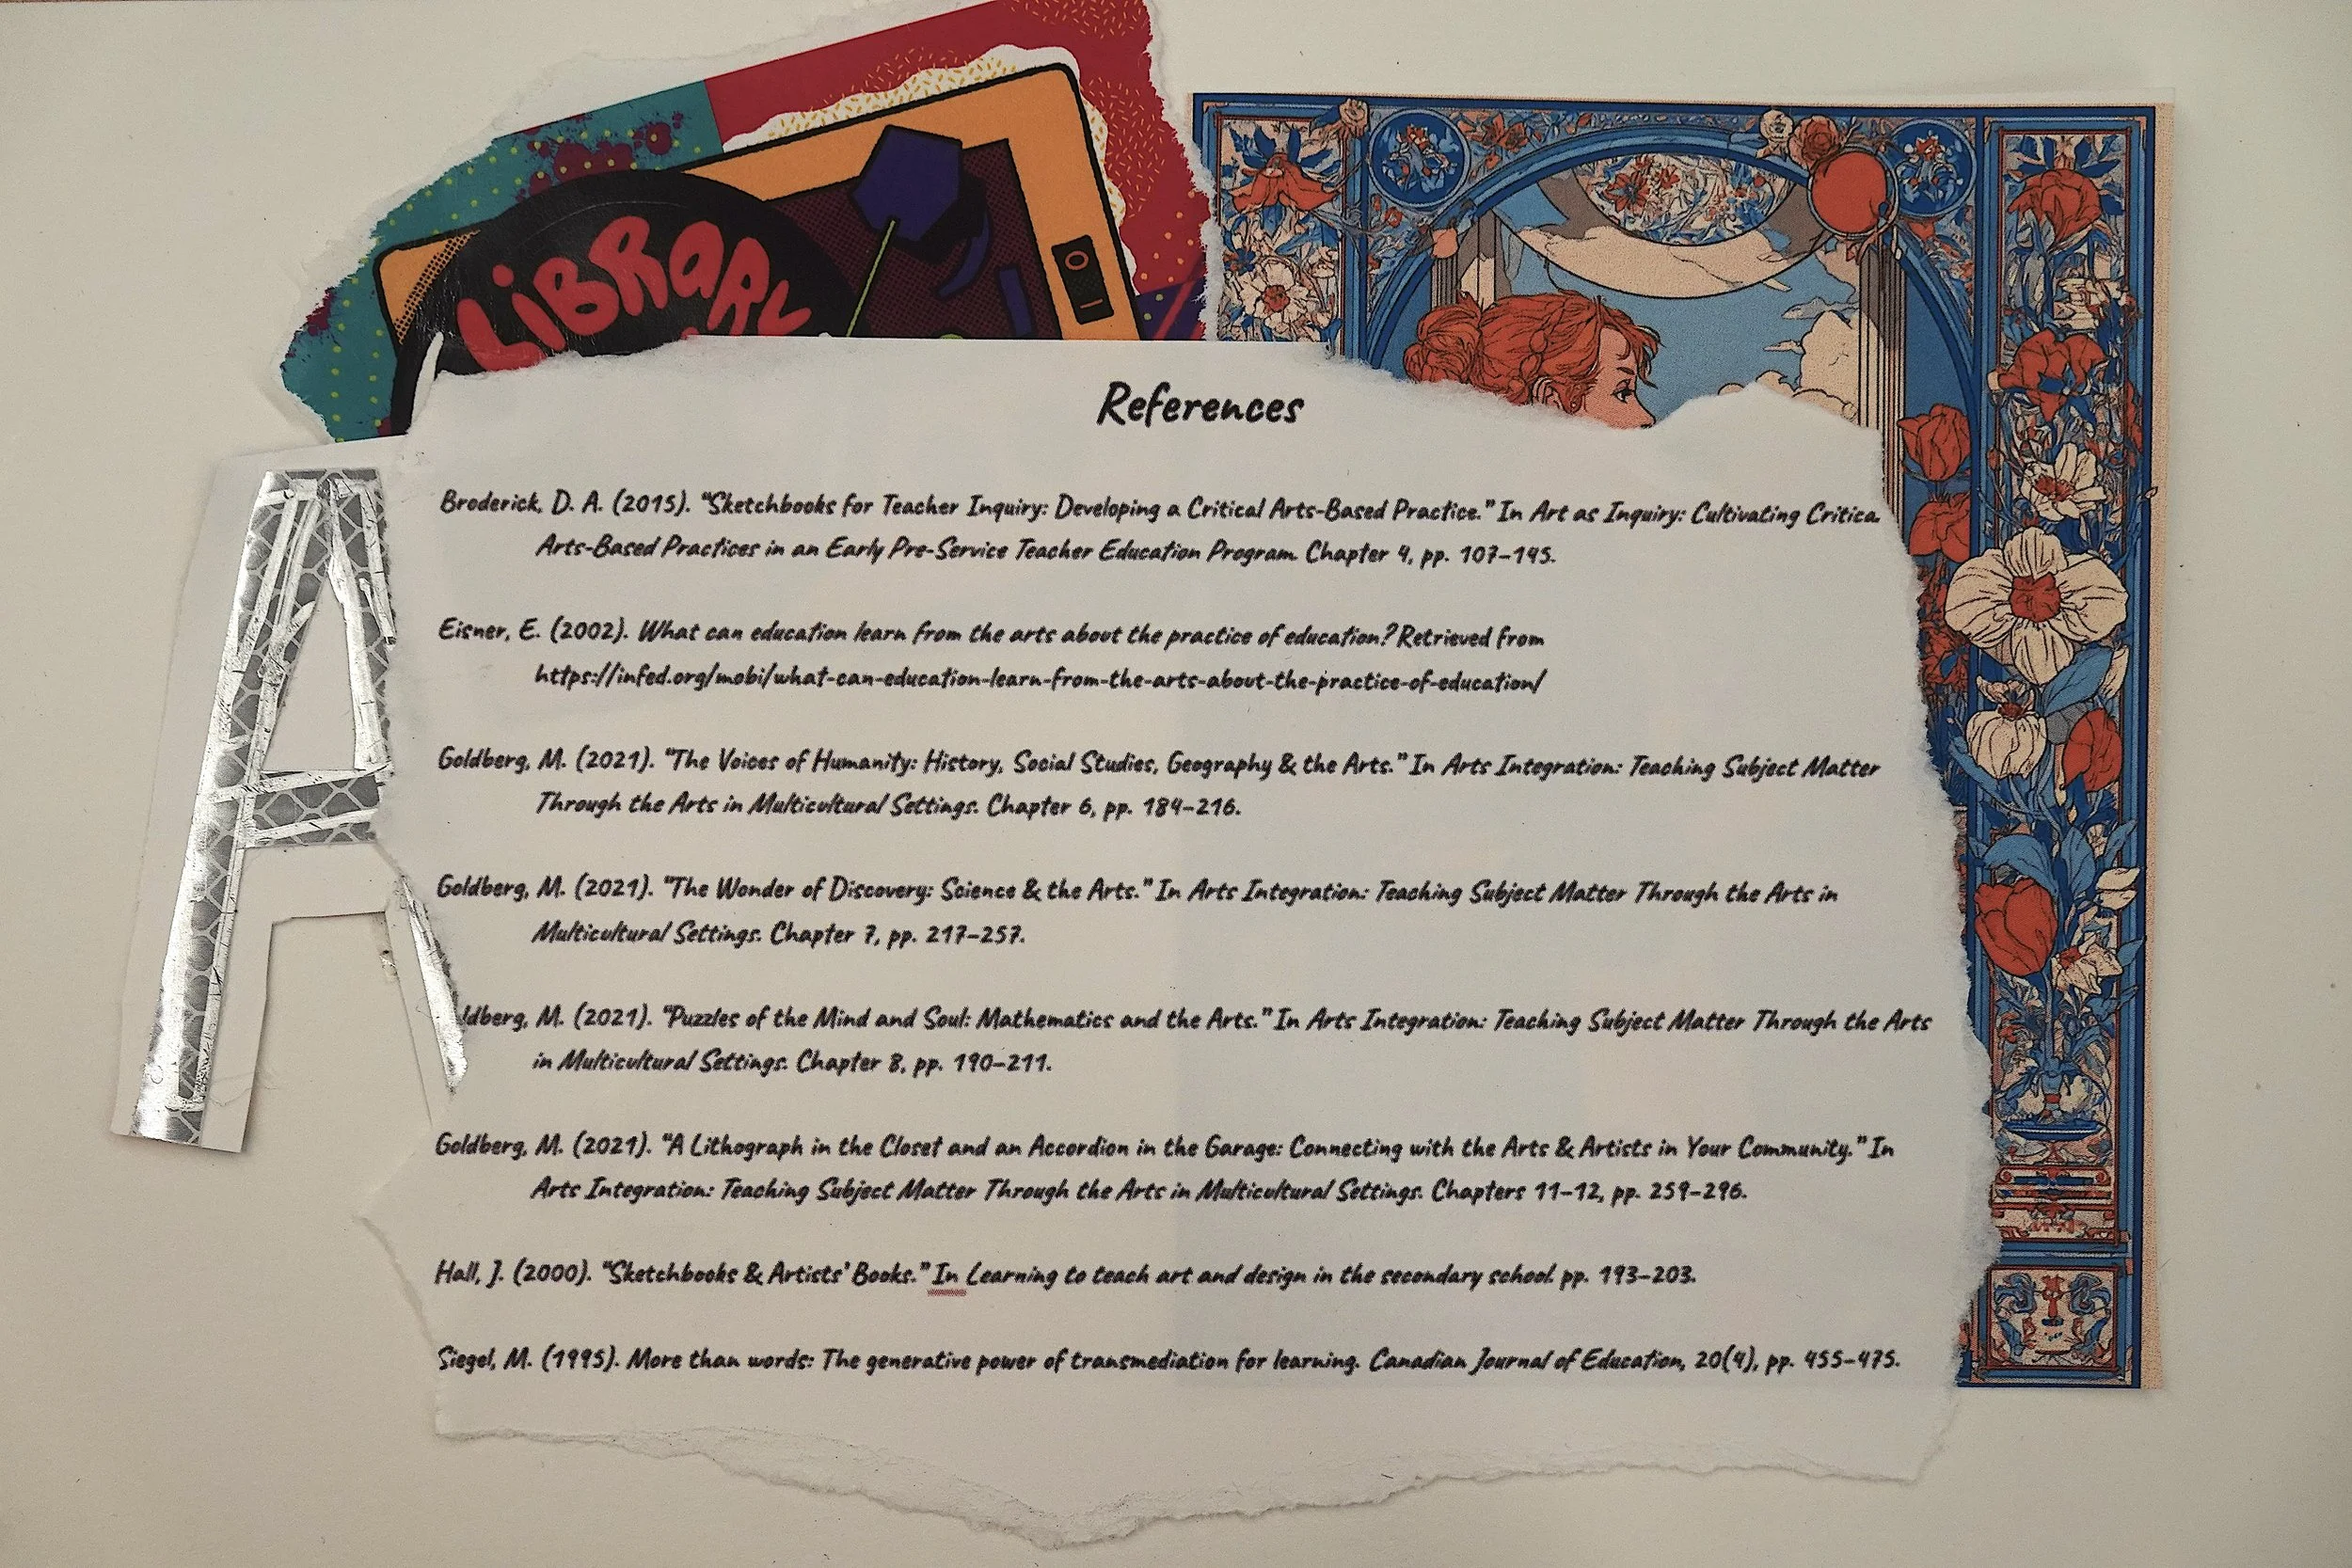 LiBRaRY
A
References
Broderick, D. A. (2015). "Sketchbooks for Teacher Inquiry: Developing a Critical Arts-Based Practice." In Art as Inquiry: Cultivating Critica
Arts-Based Practices in an Early Pre-Service Teacher Education Program. Chapter 4, pp. 107-145.
Eisner, E. (2002). What can education learn from the arts about the practice of education? Retrieved from
https://infed.org/mobi/what-can-education-learn-from-the-arts-about-the-practice-of-education/
Goldberg, M. (2021). "The Voices of Humanity: History, Social Studies, Geography & the Arts." In Arts Integration: Teaching Subject Matter
Through the Arts in Multicultural Settings. Chapter 6, pp. 184-216.
Goldberg, M. (2021). "The Wonder of Discovery: Science & the Arts." In Arts Integration: Teaching Subject Matter Through the Arts in
Multicultural Settings. Chapter 7, pp. 217-257.
ldberg, M. (2021). "Puzzles of the Mind and Soul: Mathematics and the Arts." In Arts Integration: Teaching Subject Matter Through the Arts
in Multicultural Settings. Chapter 8, pp. 190-211.
Goldberg, M. (2021). "A Lithograph in the Closet and an Accordion in the Garage: Connecting with the Arts & Artists in Your Community." In
Arts Integration: Teaching Subject Matter Through the Arts in Multicultural Settings. Chapters 11-12, pp. 259-296.
Hall, J. (2000). "Sketchbooks & Artists' Books." In Learning to teach art and design in the secondary school. pp. 193-203.
Siegel, M. (1995). More than words: The generative power of transmediation for learning. Canadian Journal of Education, 20(4), pp. 455-475.